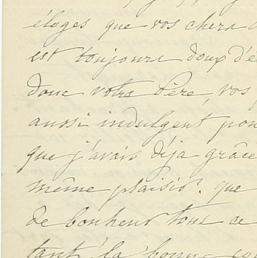 éloges que vos chers
est toujours doux d'e
donc votre Père, vos
aussi indulgent pou
que j'avais déja grâce
même plaisir. que
de bonheur tout ce
tant la bonne